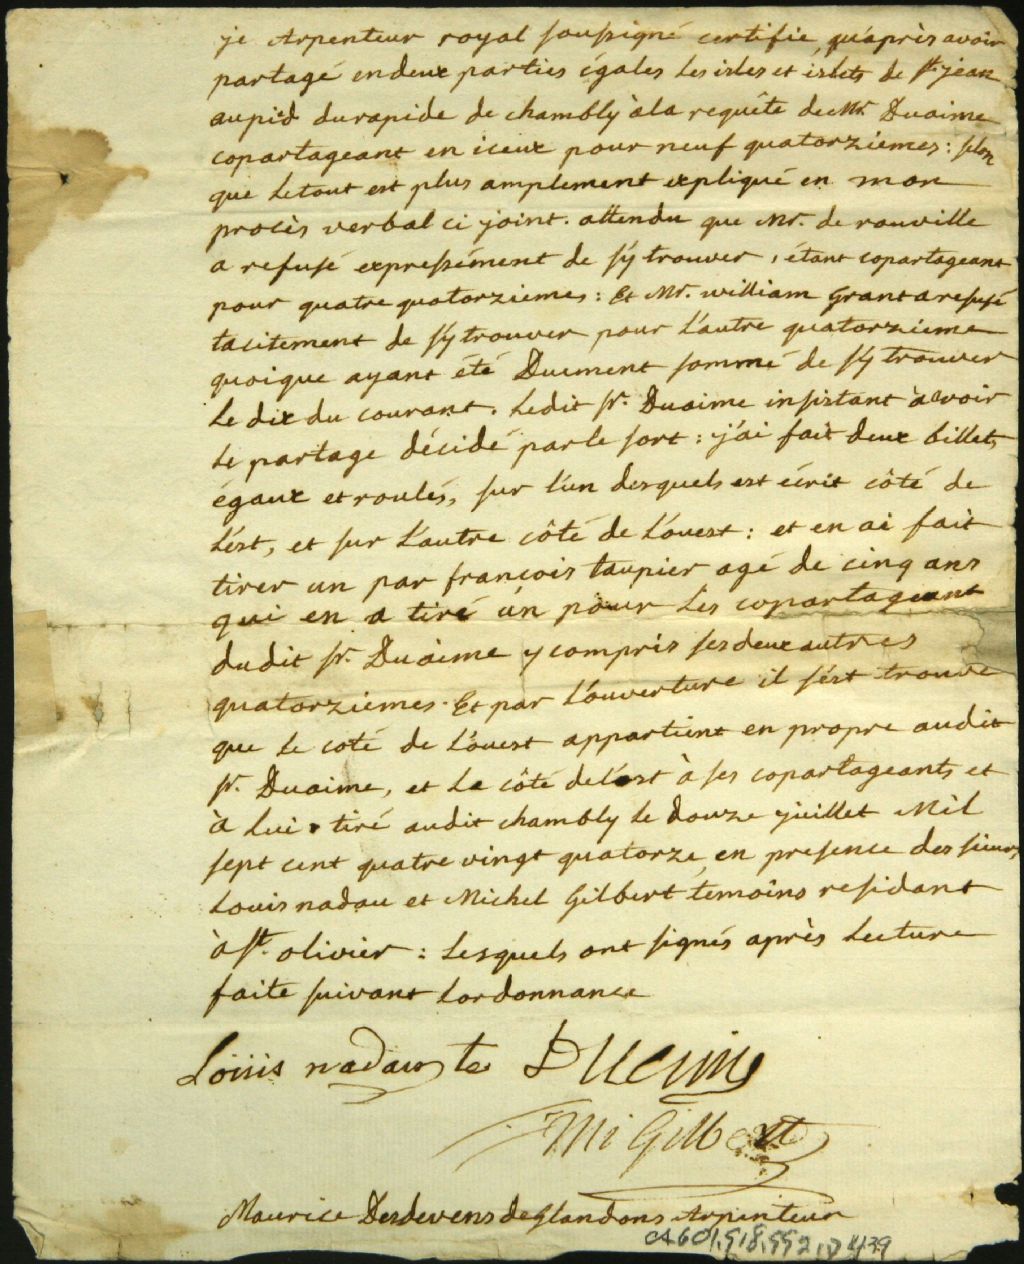 je Arpenteur royal soussigné certifie, qu'après avoir
partagé en deux parties égales les isles et islets de st. jean
au pied du rapide de chambly à la requête de Mr. Duaime
copartageant en iceux pour neuf quatorziemes: selon
que le tout est plus amplement expliqué en mon
procès verbal ci joint. attendu que Mr. de rouville
a refusé expressément de s'y trouver, étant copartageant
pour quatre quatorziemes: Et Mr. william Grant a refusé
tacitement de s'y trouver pour l'autre quatorzieme
quoique ayant été Duement sommé de s'y trouver
le dix du courant. ledit sr. Duaime insistant à avoir
le partage décidé par le sort: j'ai fait deux billets
égaux et roulés, sur l'un desquels est écrit côté de
l'est, et sur l'autre côté de l'ouest: et en ai fait
tirer un par françois taupier agé de cinq ans
qui en a tiré un pour les copartageant
dudit sr. Duaime y compris ses deux autres
quatorziemes. Et par l'ouverture il s'est trouvé
que le coté de l'ouest appartient en propre audit
sr. Duaime, et le côté de l'est à ses copartageants et
à lui. tiré audit chambly le douze juillet Mil
sept cent quatre vingt quatorze, en presence des sieurs
Louis nadau et Michel Gilbert témoins residant
à st. olivier: lesquels ont signés après lecture
faite suivant l'ordonnance
Loiiis nadau te Duaime
Mi Gilbert
Maurice Desdevens de Glandons Arpenteur